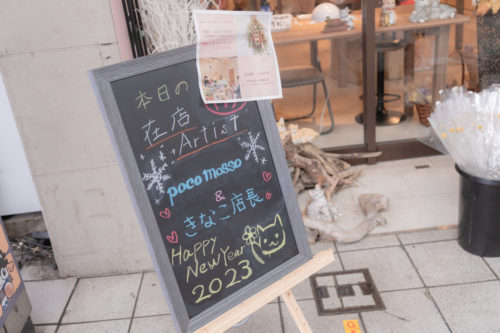 本日の
在店
Artist
poco mosso
&
きなこ店長
Happy
New Year
2023